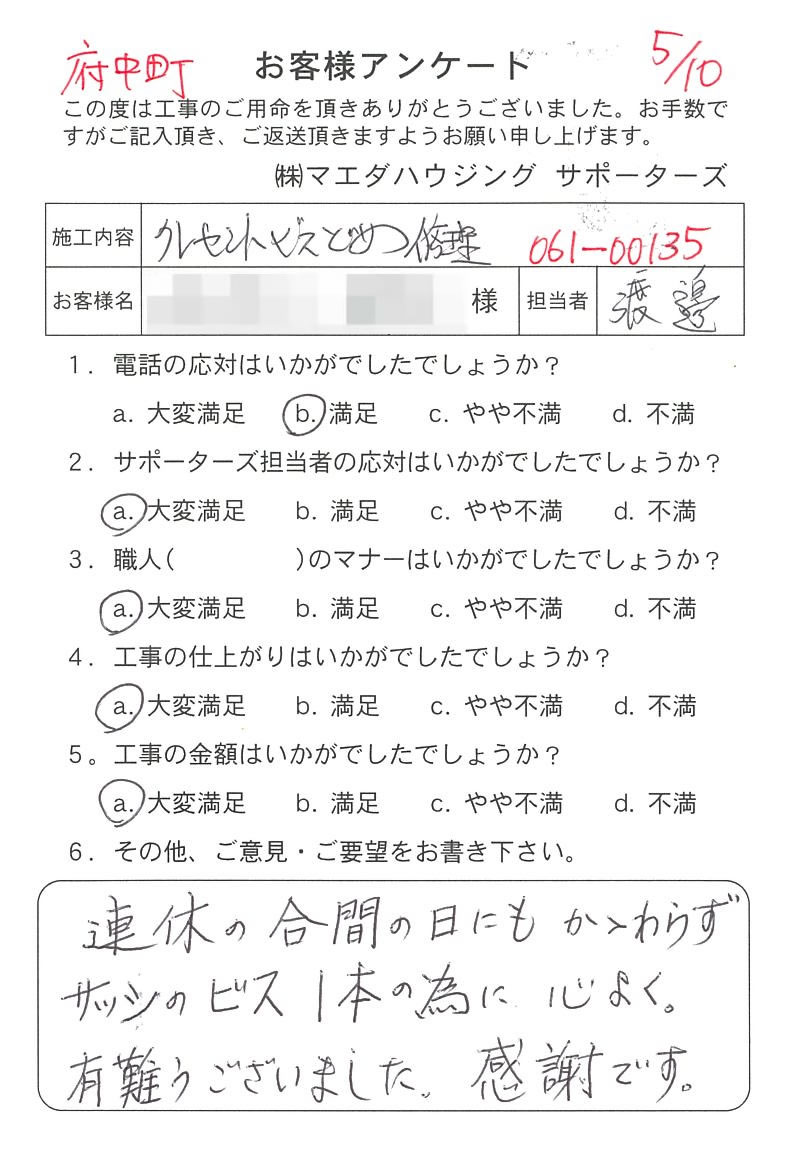 府中町 お客様アンケート 5/10
この度は工事のご用命を頂きありがとうございました。お手数で
すがご記入頂き、ご返送頂きますようお願い申し上げます。
㈱マエダハウジング サポーターズ
施工内容 クレセントビスどめ修理 061-00135
お客様名 様 担当者 渡邉
1. 電話の応対はいかがでしたでしょうか？
a. 大変満足 b. 満足 c. やや不満 d. 不満
2. サポーターズ担当者の応対はいかがでしたでしょうか？
a. 大変満足 b. 満足 c. やや不満 d. 不満
3. 職人( )のマナーはいかがでしたでしょうか？
a. 大変満足 b. 満足 c. やや不満 d. 不満
4. 工事の仕上がりはいかがでしたでしょうか？
a. 大変満足 b. 満足 c. やや不満 d. 不満
5。工事の金額はいかがでしたでしょうか？
a. 大変満足 b. 満足 c. やや不満 d. 不満
6. その他、ご意見・ご要望をお書き下さい。
連休の合間の日にもかゝわらず
サッシのビス1本の為に 心よく。
有難うございました。感謝です。